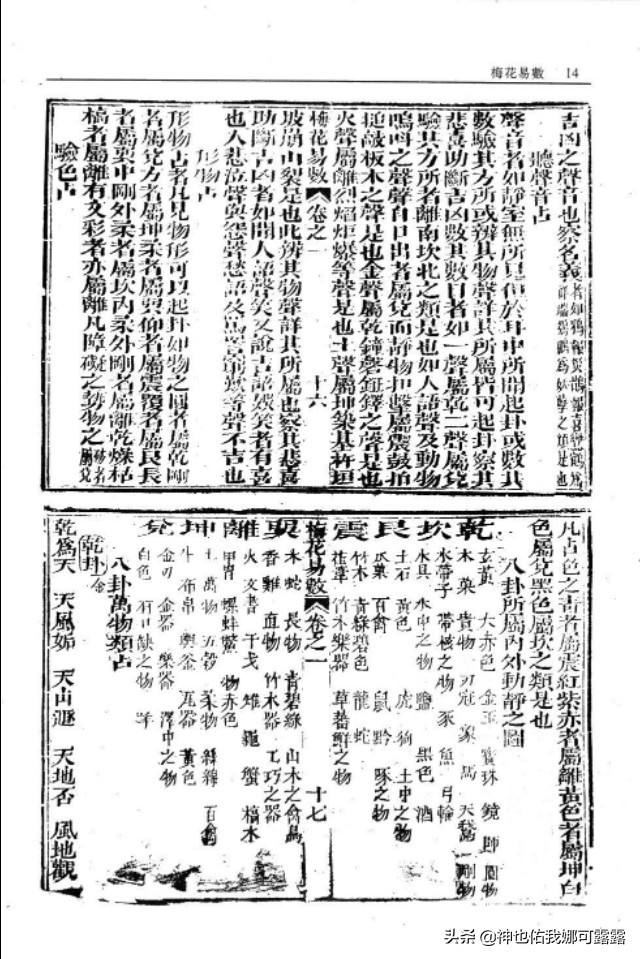 梅花易數 14
吉凶之聲音也察名義
聽聲音占
聲音者如靜室無所見但於耳中所聞起卦或數其
數驗其方所或辨其物聲詳其所屬皆可起卦察其
悲喜助斷吉凶數其數目者如一聲屬乾二聲屬兌
驗其方所者離南坎北之類是也如人語聲及動物
鳴叫之聲聲自口出者屬兌而靜物扣擊屬震鼓拍
搥敲板木之聲是也金聲屬乾鐘聲鈕鐸之聲是也
火聲屬離烈焰炬爆等聲是也土聲屬坤築基杵垣
梅花易數 卷之一 十六
坡崩山裂是也此辨其物聲詳其所屬也察其悲喜
助斷吉凶者如聞人語聲笑又說吉語娛笑者有喜
也人悲泣聲與怨聲愁語及罵詈窮歎等聲不吉也
形物占
形物占者凡見物形可以起卦如物之圓者屬乾剛
者屬兌方者屬坤柔者屬巽仰者屬震覆者屬艮長
者屬巽中剛外柔者屬坎內柔外剛者屬離乾燥枯
槁者屬離有文彩者亦屬離凡障礙之勢物之破者屬兌
驗色占
凡占色之青者屬震紅紫赤者屬離黃色者屬坤白
色屬兌黑色屬坎之類是也
八卦所屬內外動靜之圖
乾 玄黃 大赤色 金玉 寶珠 鏡 獅 圓物
木菓 貴物 冠 象 馬 天鵝 剛物
坎 水帶子 帶核之物 豕 魚 弓輪
水具 水中之物 鹽 黑色 酒
艮 土石 黃色 虎 狗 土中之物
瓜菓 百禽 鼠 黔 喙之物
震 竹木 青綠碧色 龍 蛇
花草 竹木樂器 草蕃鮮之物
梅花易數 卷之一 十七
巽 木 蛇 長物 青碧綠 山木之禽鳥
香 雞 直物 竹木器 工巧之器
離 火 文書 干戈 雉 龜 蟹 槁木
甲冑 螺蚌鱉 物赤色
坤 土 萬物 五穀 柔物 絲綿 百禽
牛 布帛 輿 釜 瓦器 黃色
兌 金刃 金器 樂器 澤中之物
白色 有口缺之物 羊
八卦萬物類占
乾卦 金
乾爲天 天風姤 天山遯 天地否 風地觀
头条 @神也佑我娜可露露